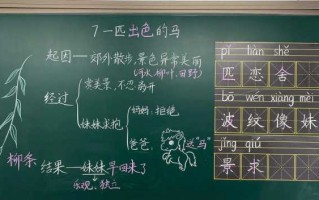 7 一匹出色的马
起因—郊外散步,景色异常美丽
(河水、柳叶、田野)
经过
赏美景,不忍离开
妹妹求抱
妈妈:拒绝
爸爸:送“马”
柳条
结果—妹妹早回来了
乐观、独立
pǐ liàn shě
匹 恋 舍
bō wén xiàng mèi
波 纹 像 妹
jǐng qiú
景 求